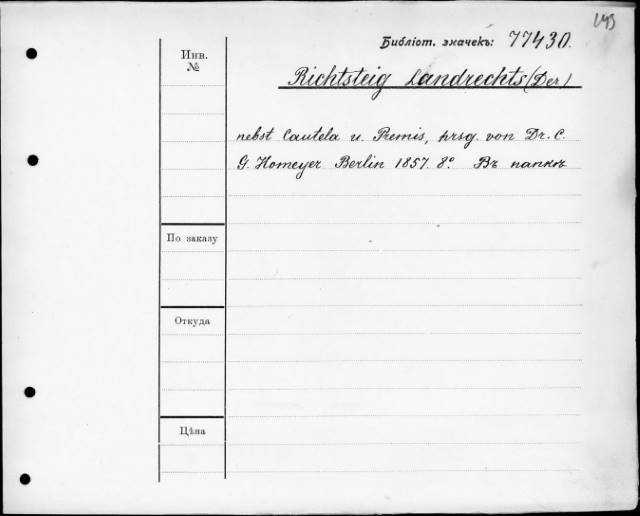 Библіот. значекъ: 77430.
Инв.
№
Richtsteig Landrechts (Der)
nebst Cautela u. Premis, hrsg. von Dr. C.
G. Homeyer Berlin 1857. 8°. Въ папкѣ
По заказу
Откуда
Цѣна